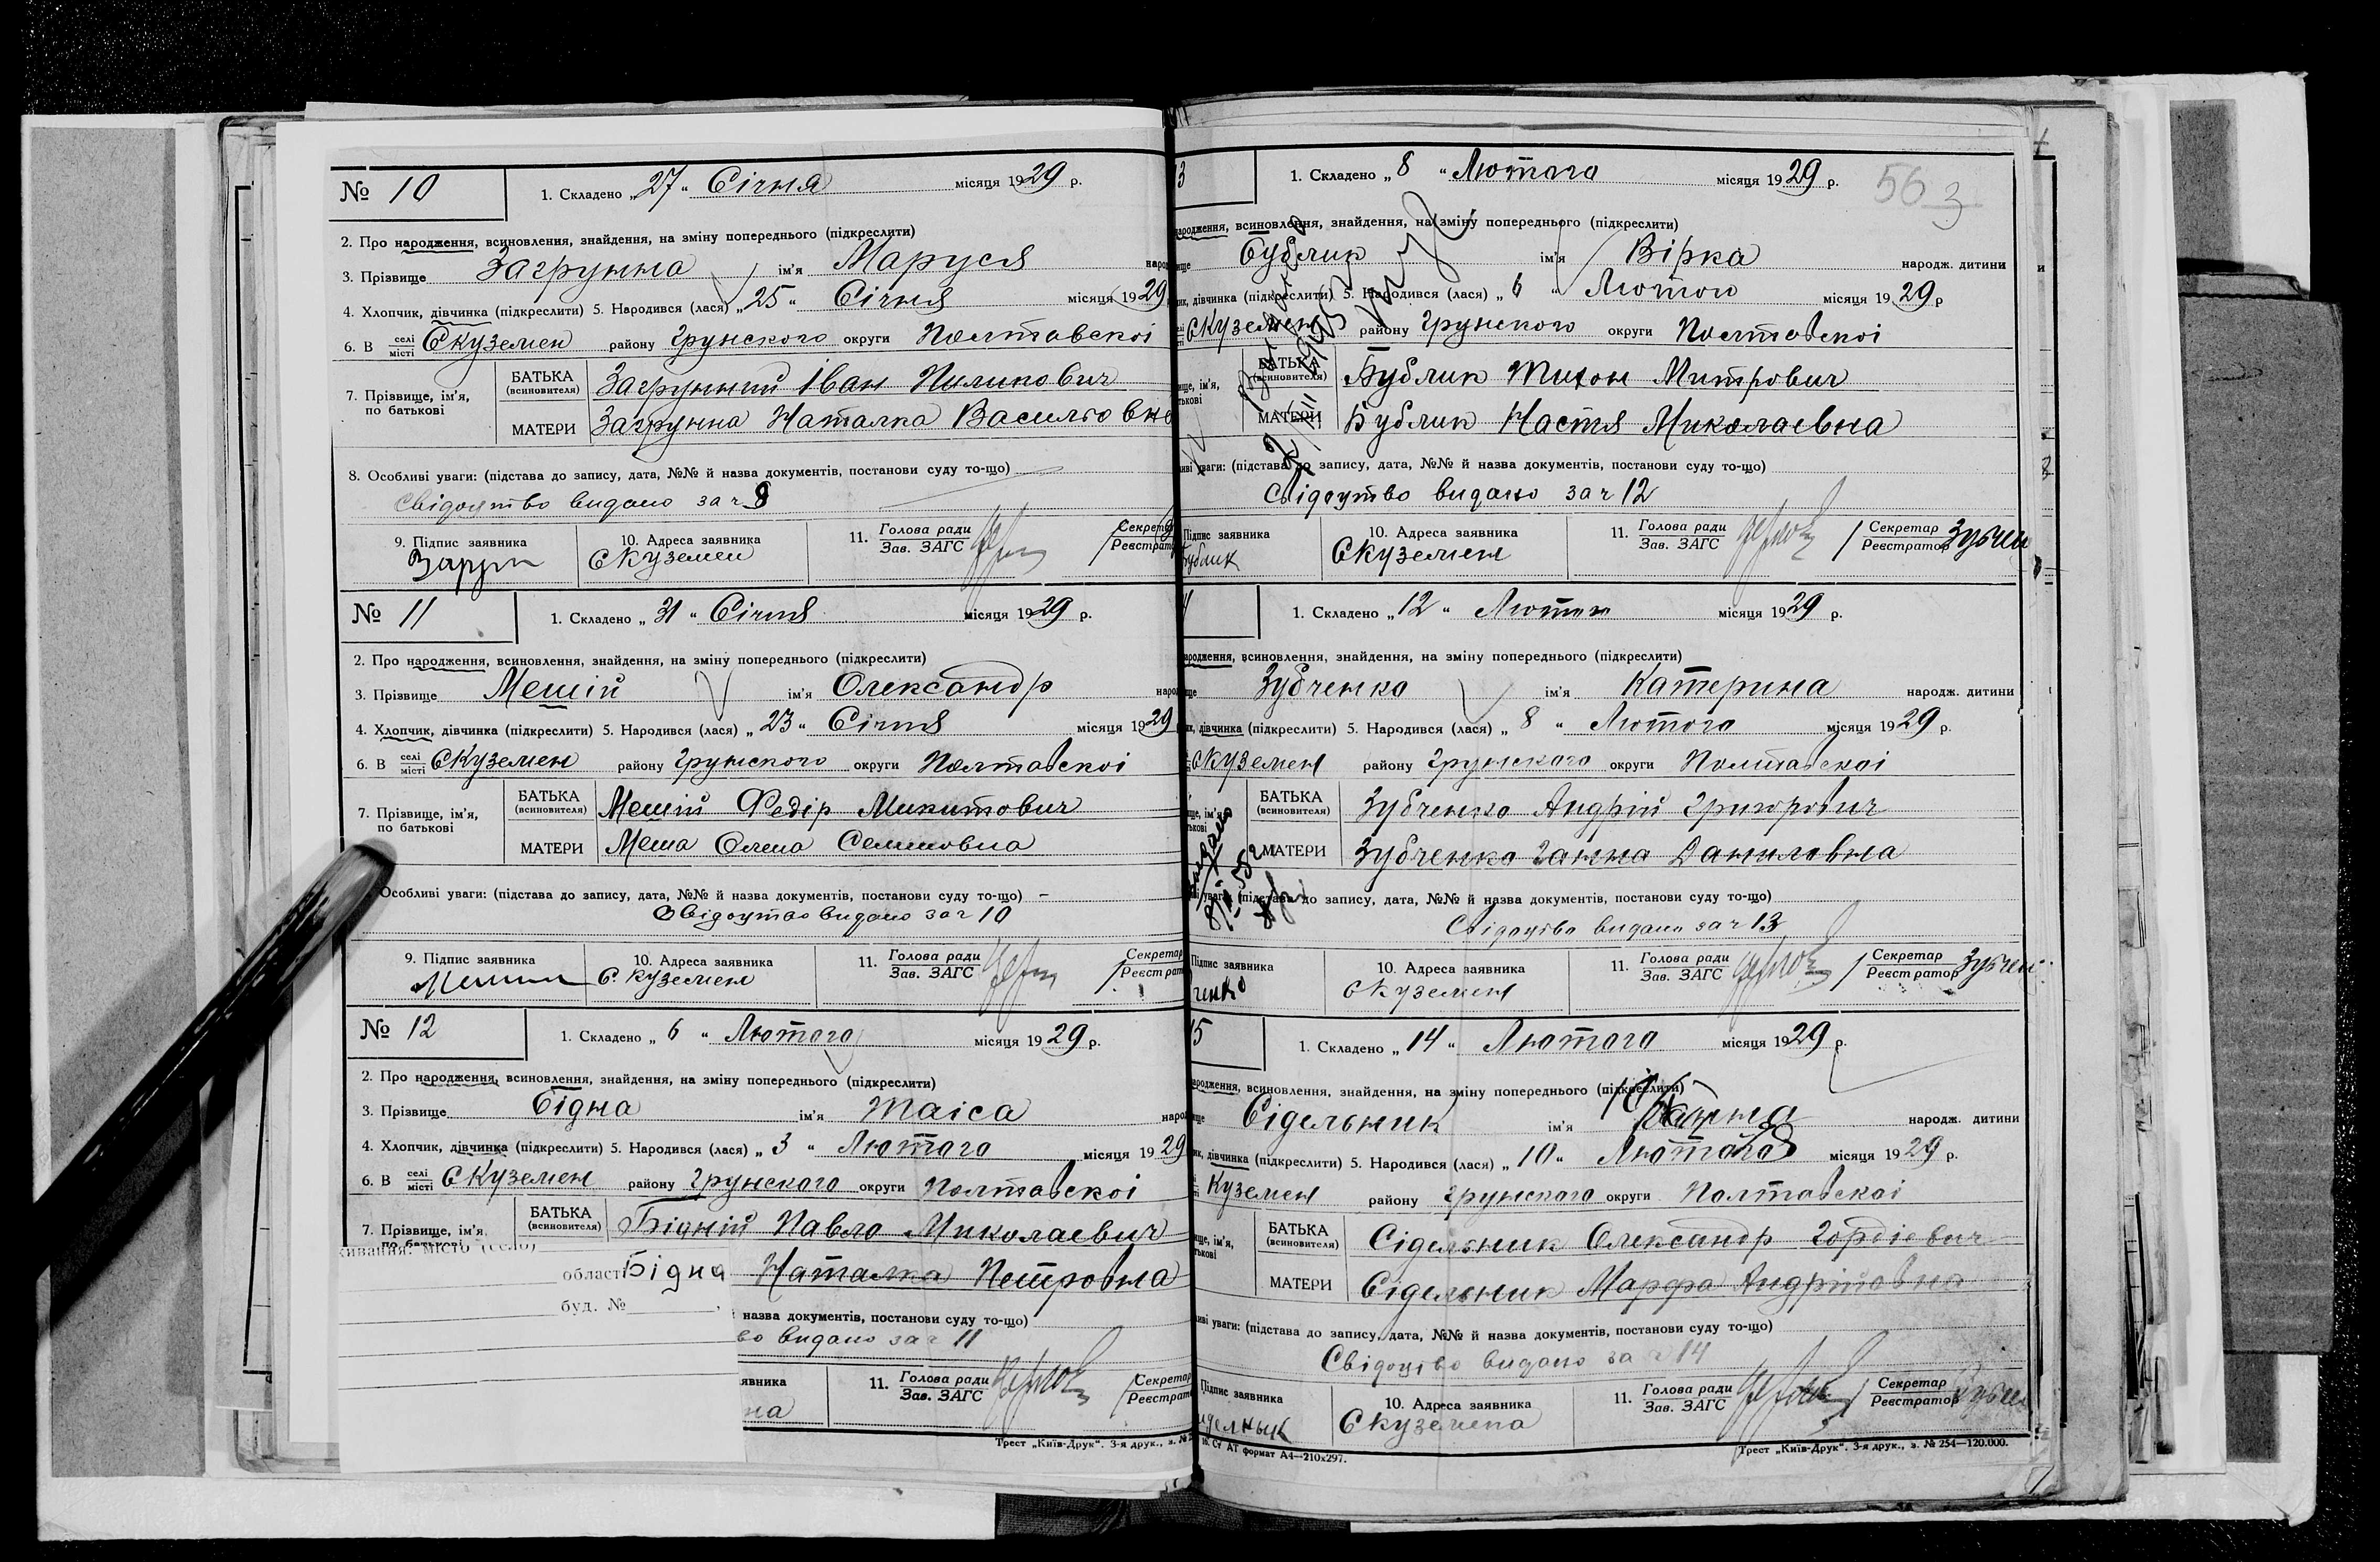 № 10
1. Складено „27“ Січня місяця 1929 р.
2. Про народження, всиновлення, знайдення, на зміну попереднього (підкреслити)
3. Прізвище Загрунна ім'я Маруся народ
4. Хлопчик, дівчинка (підкреслити) 5. Народився (лася) „25“ Січня місяця 1929
6. В селі місті С Куземен району Грунского округи Полтавскоі
7. Прізвище, ім'я, по батькові
БАТЬКА (всиновителя) Загрунний Іван Пилипович
МАТЕРИ Загрунна Наталка Васильовна
8. Особливі уваги: (підстава до запису, дата, №№ й назва документів, постанови суду то-що)
Свідоцтво видано за ч 9
9. Підпис заявника
10. Адреса заявника С Куземен
11. Голова ради Зав. ЗАГС
Секретар Реєстрат
№ 11
1. Складено „31“ Січня місяця 1929 р.
2. Про народження, всиновлення, знайдення, на зміну попереднього (підкреслити)
3. Прізвище Меший ім'я Олександр народ
4. Хлопчик, дівчинка (підкреслити) 5. Народився (лася) „23“ Січня місяця 1929
6. В селі місті С Куземен району Грунского округи Полтавскоі
7. Прізвище, ім'я, по батькові
БАТЬКА (всиновителя) Меший Федір Микитович
МАТЕРИ Меша Олена Семиновна
Особливі уваги: (підстава до запису, дата, №№ й назва документів, постанови суду то-що) –
Свідоцтво видано за ч 10
9. Підпис заявника
10. Адреса заявника С. Куземен
11. Голова ради Зав. ЗАГС
Секретар Реєстрат
№ 12
1. Складено „6“ Лютого місяця 1929 р.
2. Про народження, всиновлення, знайдення, на зміну попереднього (підкреслити)
3. Прізвище Бідна ім'я Таіса народ
4. Хлопчик, дівчинка (підкреслити) 5. Народився (лася) „3“ Лютого місяця 1929
6. В селі місті С Куземен району Грунского округи Полтавскоі
7. Прізвище, ім'я, по батькові
БАТЬКА (всиновителя) Бідний Павло Миколаевич
живання: місто (село)
області Бідна Наталка Петровна
буд. №
назва документів, постанови суду то-що)
во видано за ч 11
явника
на
11. Голова ради Зав. ЗАГС
Секретар Реєстрат
Трест „Київ-Друк“. 3-я друк., з. №
3
1. Складено „8“ Лютого місяця 1929 р.
56 3
народження, всиновлення, знайдення, на зміну попереднього (підкреслити)
Бублик ім'я Вірка народж. дитини
дівчинка (підкреслити) 5. Народився (лася) „6“ Лютого місяця 1929 р
С Куземен району Грунского округи Полтавскоі
БАТЬКА (всиновителя) Бублик Тихон Митрович
МАТЕРИ Бублик Настя Миколаевна
уваги: (підстава до запису, дата, №№ й назва документів, постанови суду то-що)
Свідоцтво видано за ч 12
Підпис заявника Бублик
10. Адреса заявника С Куземен
11. Голова ради Зав. ЗАГС
Секретар Реєстратор Зубчен
1. Складено „12“ Лютого місяця 1929 р.
народження, всиновлення, знайдення, на зміну попереднього (підкреслити)
Зубченко ім'я Катерина народж. дитини
дівчинка (підкреслити) 5. Народився (лася) „8“ Лютого місяця 1929 р.
С Куземен району Грунского округи Полтавскоі
БАТЬКА (всиновителя) Зубченко Андрій Григорович
МАТЕРИ Зубченко Ганна Даниловна
уваги: (підстава до запису, дата, №№ й назва документів, постанови суду то-що)
Свідоцтво видано за ч 13
Підпис заявника ченко
10. Адреса заявника С Куземен
11. Голова ради Зав. ЗАГС
Секретар Реєстратор Зубчен
15
1. Складено „14“ Лютого місяця 1929 р.
народження, всиновлення, знайдення, на зміну попереднього (підкреслити)
Сідельник ім'я народж. дитини
дівчинка (підкреслити) 5. Народився (лася) „10“ Лютого місяця 1929 р.
Куземен району Грунского округи Полтавскоі
БАТЬКА (всиновителя) Сідельник Олександр Гордієвич
МАТЕРИ Сідельник Марфа Андріювна
уваги: (підстава до запису, дата, №№ й назва документів, постанови суду то-що)
Свідоцтво видано за ч 14
Підпис заявника
10. Адреса заявника С Куземена
11. Голова ради Зав. ЗАГС
Секретар Реєстратор Зубчен
Ст АТ формат А4—210x297.
Трест „Київ-Друк“. 3-я друк., з. № 254—120.000.